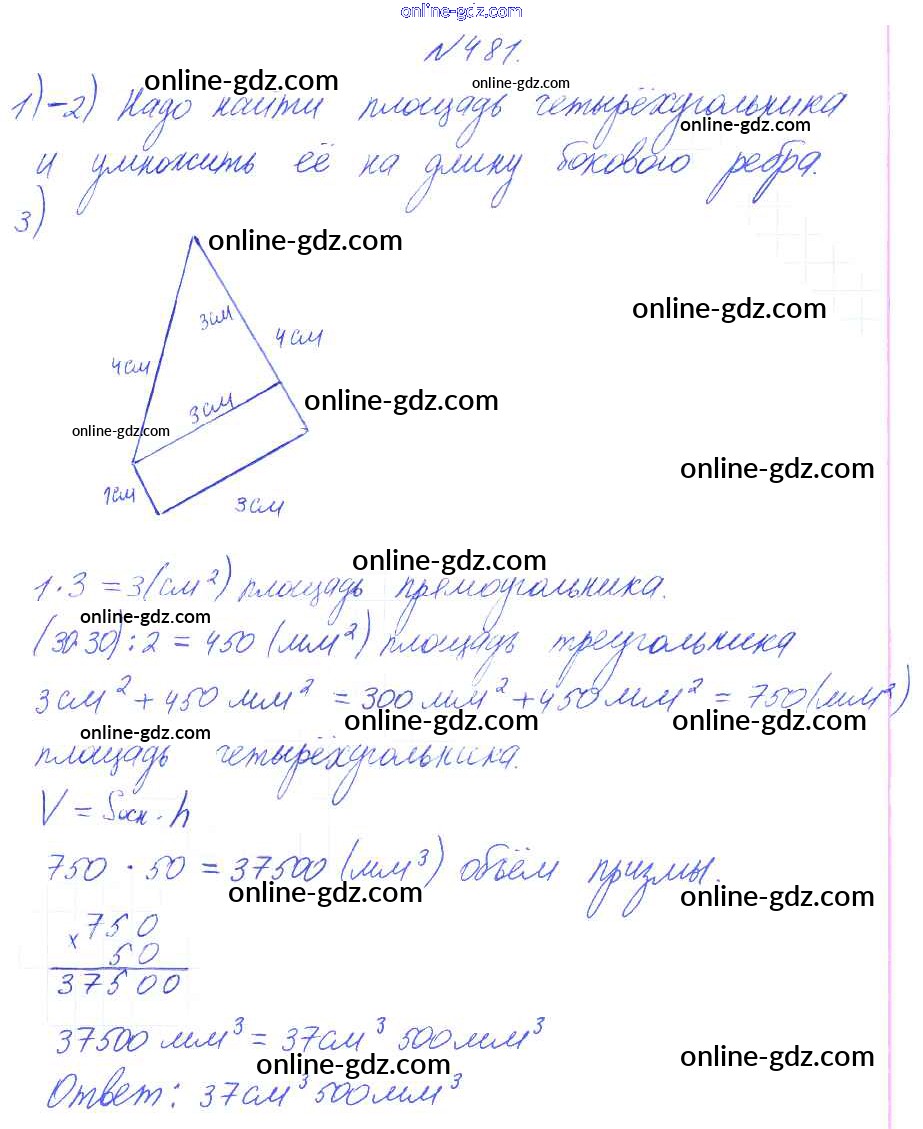 online-gdz.com
№481.
online-gdz.com online-gdz.com
1)-2) Надо найти площадь четырёхугольника
online-gdz.com
и умножить её на длину бокового ребра.
3)
online-gdz.com
online-gdz.com
3см
4см
4см
3см
online-gdz.com
online-gdz.com
online-gdz.com
1см
3см
online-gdz.com
1·3 = 3(см²) площадь прямоугольника.
online-gdz.com
(30·30):2 = 450 (мм²) площадь треугольника
3см² + 450 мм² = 300 мм² + 450 мм² = 750 (мм²)
online-gdz.com online-gdz.com
online-gdz.com
площадь четырёхугольника.
V = Sосн · h
750 · 50 = 37500 (мм³) объём призмы.
online-gdz.com online-gdz.com
x 750
50
37500
37500 мм³ = 37см³ 500мм³
online-gdz.com online-gdz.com
Ответ: 37см³ 500мм³